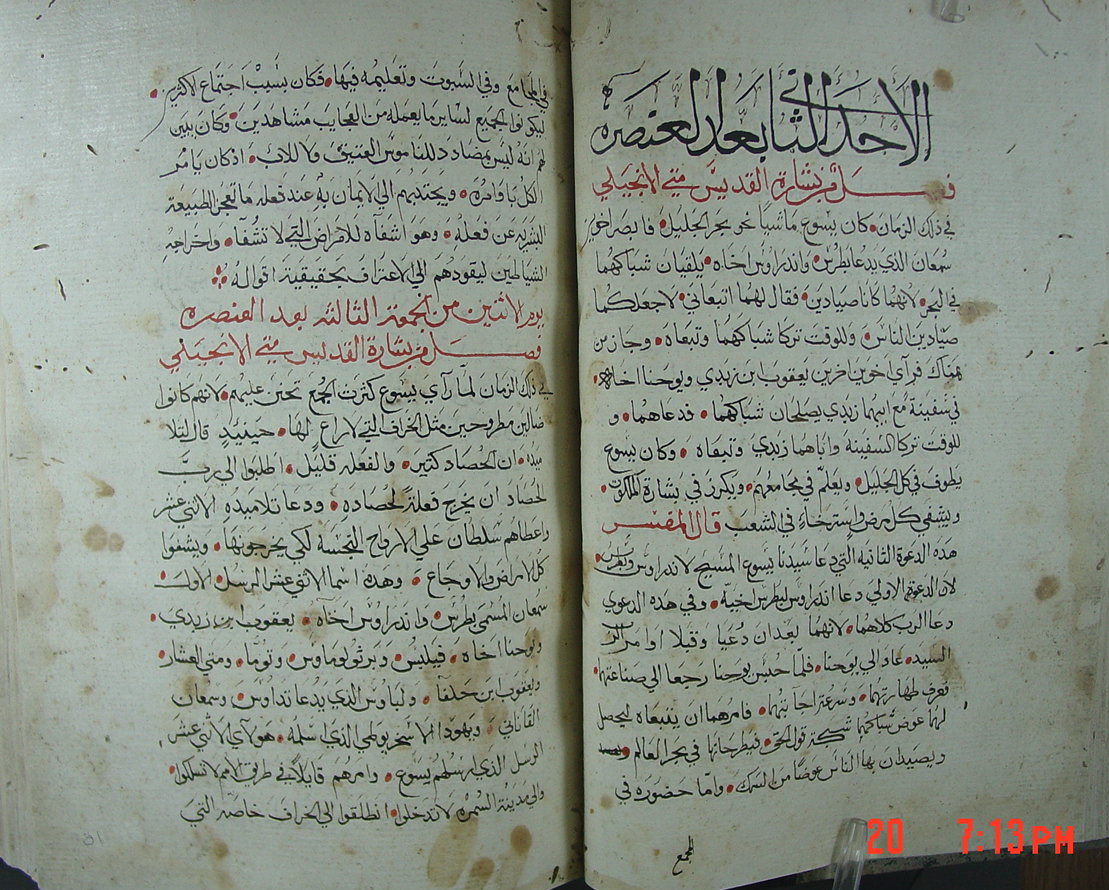 الاحد الثاني بعد العنصره
فصل من بشارة القديس متي الانجيلي
في ذلك الزمان كان يسوع ماشيا نحو بحر الجليل فابصر اخوين
سمعان الذي يدعا بطرس واندراوس اخاه يلقيان شباكهما
في البحر لانهما كانا صيادين فقال لهما اتبعاني لاجعلكما
صيادين الناس وللوقت تركا شباكهما وتبعاه وجاز من
هناك فرآي اخوين اخرين يعقوب ابن زبدي ويوحنا اخاه
في سفينة مع ابيهما زبدي يصلحان شباكهما فدعاهما و
للوقت تركا السفينه واباهما زبدي وتبعاه وكان يسوع
يطوف في كل الجليل ويعلم في مجامعهم ويكرز في بشارة الملكوت
ويشفي كل مرض واسترخاء في الشعب قال المفسر
هذه الدعوة الثانيه التي دعا سيدنا يسوع المسيح لاندراوس وبطرس
لان الدعوة الاولي دعا اندراوس بطرس اخيه وفي هذه الدعوي
دعا الرب كلاهما لانهما بعد ان دعيا وقبلا اوامر
السيد عاد الي يوحنا فلما حبس يوحنا رجعا الي صناعتهما
فعرف طهارتهما وسرعة اجابتهما فامرهما ان يتبعاه ليحصل
لهما عوض شباكهما شبكة قول الحق فيطرحانها في بحر العالم
ويصيدان بها الناس عوضا من السمك واما حضوره في
المجمع
في المجامع وفي السبوت وتعليمه فيها فكان بسبب اجتماع الاكثر
ليكونوا الجميع لساير ما يعمله من العجايب مشاهدين وكان يبين
لهم انه ليس بمضادد للناموس العتيق ولا للاب اذ كان يامر
الكل باوامره ويجتذبهم الي الايمان به عند فعله ما تعجز الطبيعة
البشريه عن فعله وهو اشفاه للامراض التي لا تشفا واخراجه
الشياطين ليقودهم الي الاعتراف بحقيقية اقواله
يوم الاثنين من الجمعة الثالثه بعد العنصره
فصل من بشارة القديس متي الانجيلي
في ذلك الزمان لما رآي يسوع كثرت الجمع تحنن عليهم لانهم كانوا
ضالين مطروحين مثل الخراف التي لا راع لها حينيذ قال لتلا
ميذه ان الحصاد كثير والفعله قليل اطلبوا الي رب
الحصاد ان يخرج فعلة لحصاده ودعا تلاميذه الاثني عشر
واعطاهم سلطان علي الارواح النجسه لكي يخرجونها ويشفوا
كل الامراض والاوجاع وهذه اسما الاثني عشر الرسل الاول
سمعان المسمي بطرس واندراوس اخاه يعقوب ابن زبدي
ويوحنا اخاه فيلبس وبرثولوماوس وتوما ومتي العشار
ويعقوب ابن حلفا ولباوس الذي يدعا تداوس وسمعان
القاناني ويهودا الاسخريوطي الذي اسلمه هولاي الاثني عشر
الرسل الذي ارسلهم يسوع وامرهم قايلا في طريق الامم لا تسلكوا
والي مدينة السمره لا تدخلوا انطلقوا الي الخراف خاصة التي
20 7:13 PM